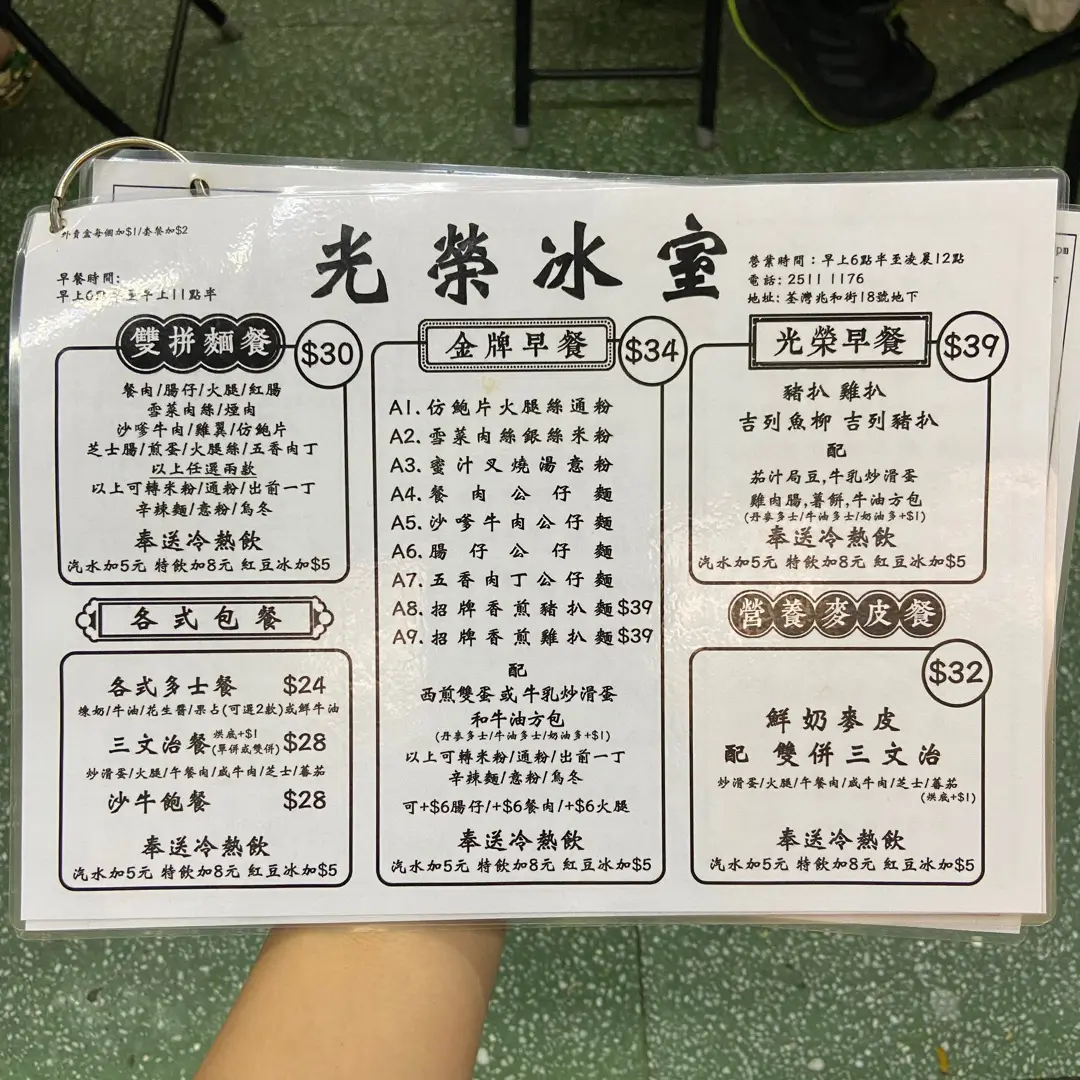 外賣盒每個加$1/套餐加$2
早餐時間:
早上6點半至早上11點半
光榮冰室
營業時間：早上6點半至凌晨12點
電話: 2511 1176
地址: 荃灣兆和街18號地下
雙拼麵餐
$30
餐肉/腸仔/火腿/紅腸
雪菜肉絲/煙肉
沙嗲牛肉/雞翼/仿鮑片
芝士腸/煎蛋/火腿絲/五香肉丁
以上任選兩款
以上可轉米粉/通粉/出前一丁
辛辣麵/意粉/烏冬
奉送冷熱飲
汽水加5元 特飲加8元 紅豆冰加$5
各式包餐
各式多士餐 $24
煉奶/牛油/花生醬/果占(可選2款)或鮮牛油
三文治餐 烘底+$1 (單併或雙併) $28
炒滑蛋/火腿/午餐肉/咸牛肉/芝士/蕃茄
沙牛飽餐 $28
奉送冷熱飲
汽水加5元 特飲加8元 紅豆冰加$5
金牌早餐
$34
A1. 仿鮑片火腿絲通粉
A2. 雪菜肉絲銀絲米粉
A3. 蜜汁叉燒湯意粉
A4. 餐肉公仔麵
A5. 沙嗲牛肉公仔麵
A6. 腸仔公仔麵
A7. 五香肉丁公仔麵
A8. 招牌香煎豬扒麵$39
A9. 招牌香煎雞扒麵$39
配
西煎雙蛋或牛乳炒滑蛋
和牛油方包
(丹麥多士/牛油多士/奶油多+$1)
以上可轉米粉/通粉/出前一丁
辛辣麵/意粉/烏冬
可+$6腸仔/+$6餐肉/+$6火腿
奉送冷熱飲
汽水加5元 特飲加8元 紅豆冰加$5
光榮早餐
$39
豬扒 雞扒
吉列魚柳 吉列豬扒
配
茄汁局豆,牛乳炒滑蛋
雞肉腸,薯餅,牛油方包
(丹麥多士/牛油多士/奶油多+$1)
奉送冷熱飲
汽水加5元 特飲加8元 紅豆冰加$5
營養麥皮餐
$32
鮮奶麥皮
配 雙併三文治
炒滑蛋/火腿/午餐肉/咸牛肉/芝士/蕃茄
(烘底+$1)
奉送冷熱飲
汽水加5元 特飲加8元 紅豆冰加$5
pm